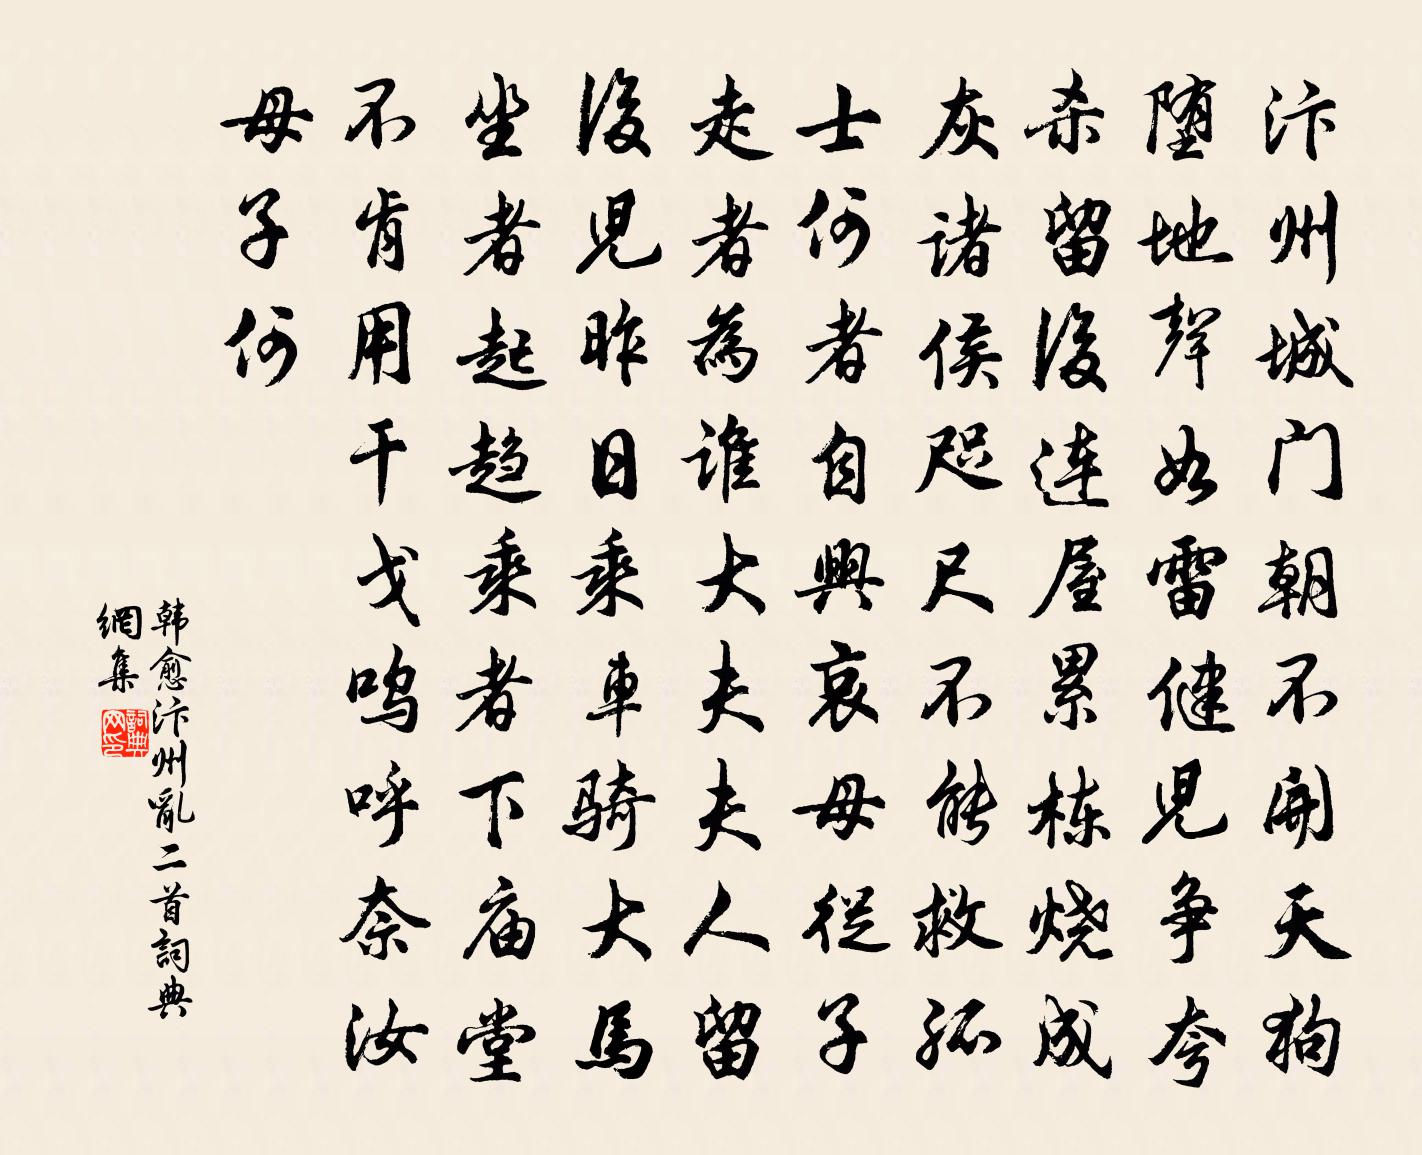 汴州城门朝不開天狗
堕地聲如雷健児争夸
杀留後連屋累栋烧成
灰诸侯咫尺不能救孤
士何者自興哀母從子
走者為谁大夫夫人留
後児昨日乘車骑大馬
坐者起趋乘者下庙堂
不肯用干戈呜呼奈汝
母子何
韩愈汴州亂二首詞典
網集
詞典
网印